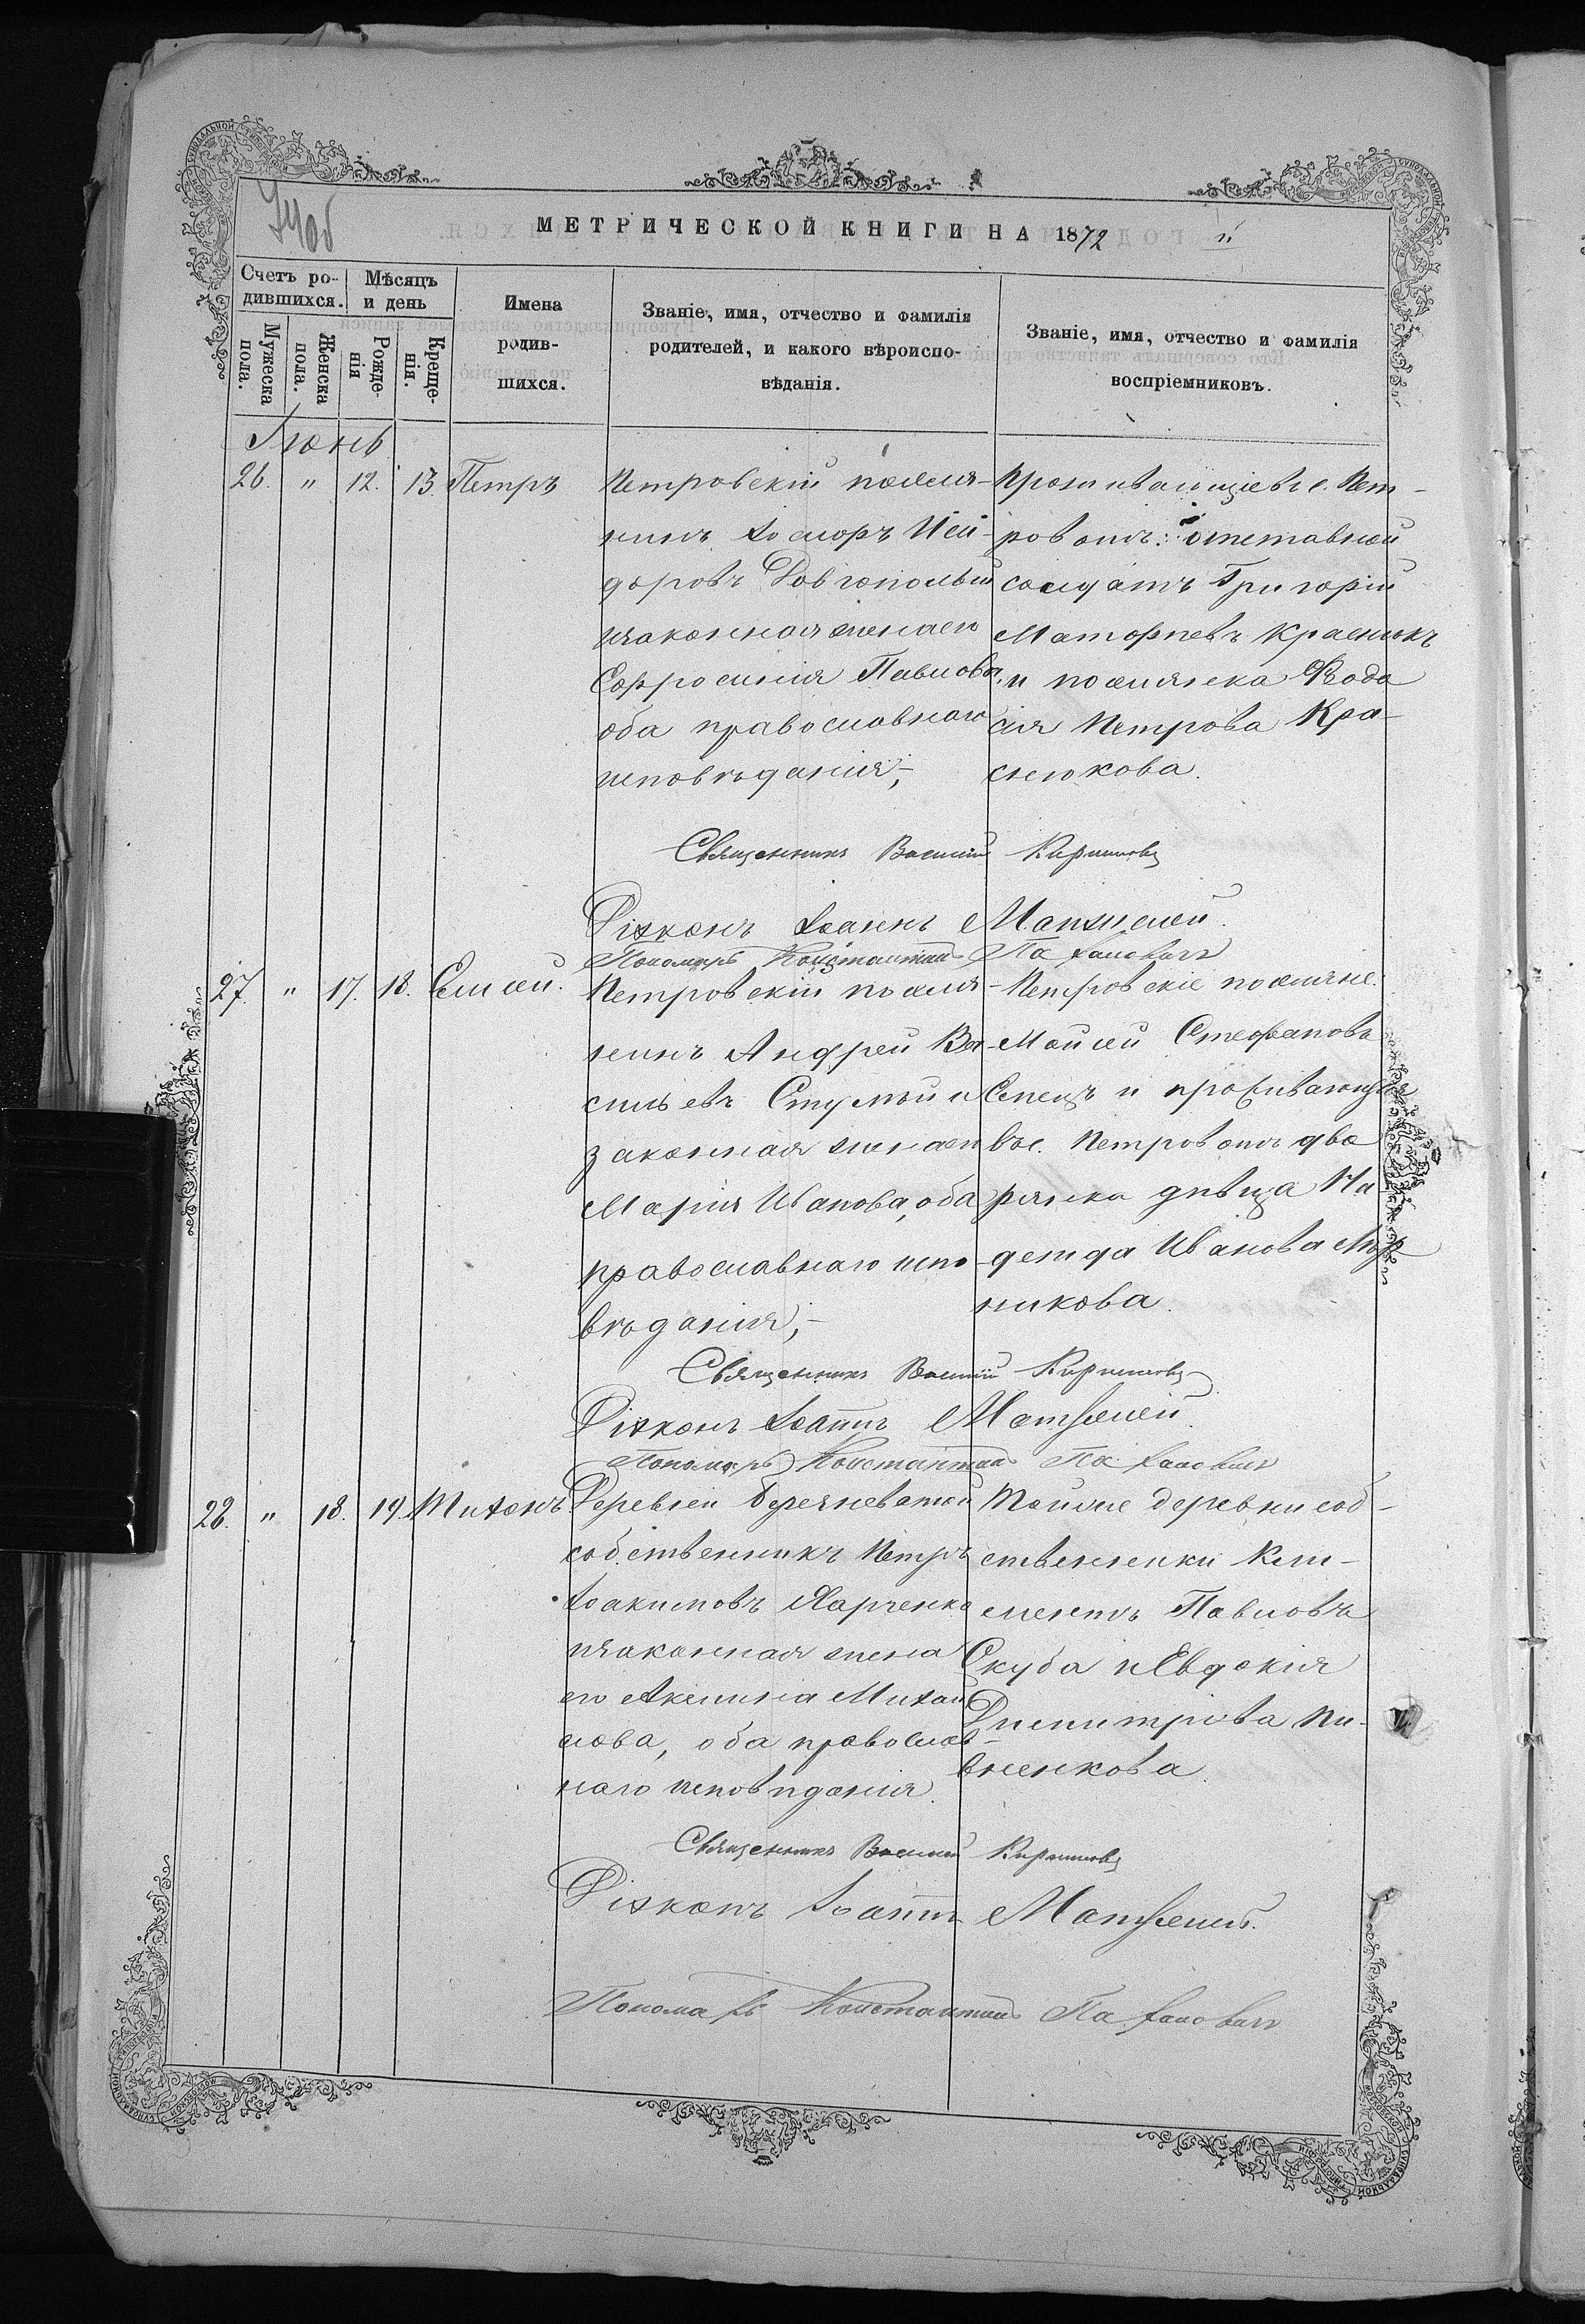 МЕТРИЧЕСКОЙ КНИГИ НА 1872
Счетъ ро-
дившихся.
Мѣсяцъ
и день
Мужеска
пола.
Женска
пола.
Рожде-
нія
Креще-
нія.
Имена
родив-
шихся.
Званіе, имя, отчество и фамилія
родителей, и какого вѣроиспо-
вѣданія.
Званіе, имя, отчество и фамилія
воспріемниковъ.
Іюнь
26. " 12. 13. Петръ
Петровскій поселя-
нинъ Ѳеодоръ Иси-
доровъ Довгополый
изаконная женаего
Евфросинія Павлова,
оба православнаго
исповѣданія;-
Проживающіевъс. Пет-
ровомъ: отставной
солдатъ Григорій
Матѳѣевъ Краснюкъ
и поселянка Ѳеодо
сія Петрова Кра-
снюкова.
Священникъ Василій Кирилловъ
Діаконъ Іоаннъ
Пономарь Константинъ
27. " 17. 18. Елисей.
Петровскій поселя-
нинъ Андрей Ва-
сильевъ и
законная женаего
Марія Иванова, оба
православнаго испо-
вѣданія;-
Петровскіе поселяне:
Мойсей Стефановъ
и проживающая
въс. Петровомъ дво
рянка дѣвица На
дежда Иванова
никова.
Священникъ Василій Кирилловъ
Діаконъ Іоаннъ
Пономарь Константинъ
28. " 18. 19. Тихонъ.
Деревни
собственникъ Петръ
Іоакимовъ Харченко
изаконная жена
его Акилина Михай
лова, оба православ-
наго исповѣданія.
Тойже деревни соб-
ственники Кли-
ментъ Павловъ
Скуба иЕвдокія
Димитріева Пи-
вненкова.
Священникъ Василій Кирилловъ
Діаконъ Іоаннъ
Пономарь Константинъ